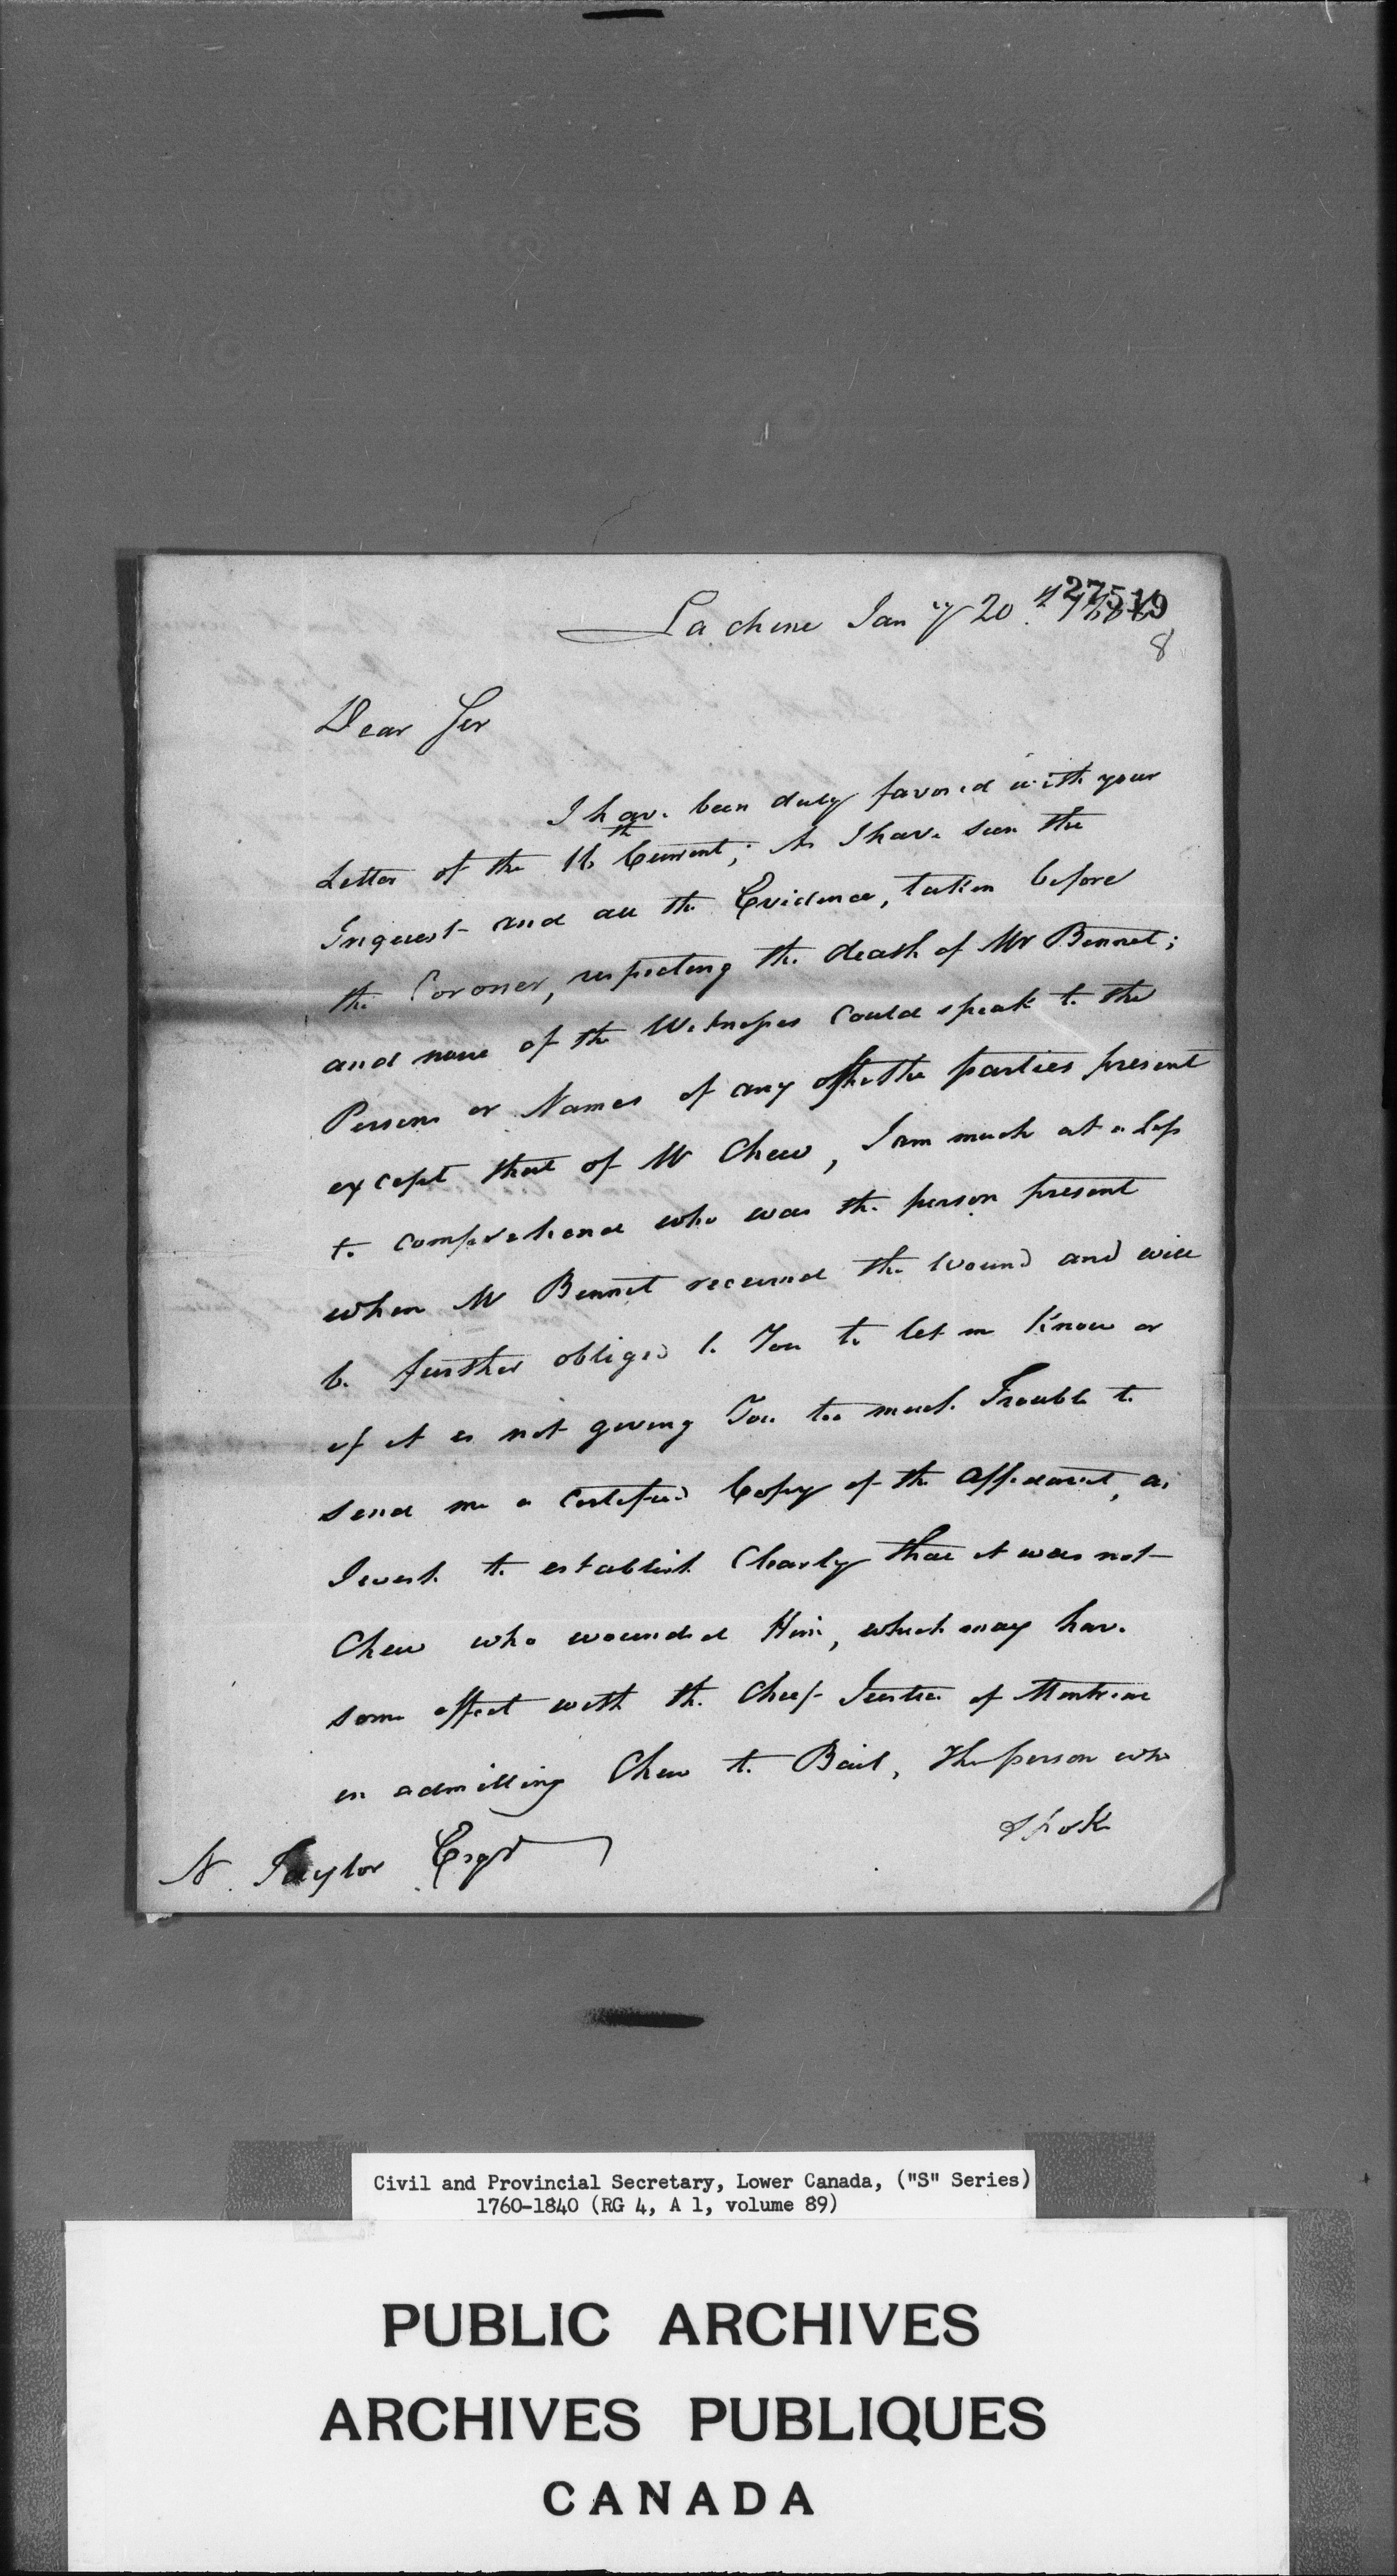 La chine Jan ry 20 th
27519
8
Dear Sir
I have been duly favored with your
Letter of the 16th Current; As I have seen the
Inquest and all the Evidence, taken before
the Coroner, respecting the death of Mr Bennet;
and none of the Witnesses could speak to the
Persons or Names of any of the parties present
except that of Mr Chew, I am much at a Loss
to comprehend who was the person present
when Mr Bennet received the Wound and will
be further obliged to You to let me Know or
if it is not giving You too much Trouble to
send me a certified Copy of the affidavit, as
I wish to establish Clearly that it was not
Chew who wounded Him, which may have
some effect with the Cheif Justice of Montreal
in admitting Chew to Bail, The person who
spoke
N. Taylor Esqr
Civil and Provincial Secretary, Lower Canada, ("S" Series)
1760-1840 (RG 4, A 1, volume 89)
PUBLIC ARCHIVES
ARCHIVES PUBLIQUES
CANADA